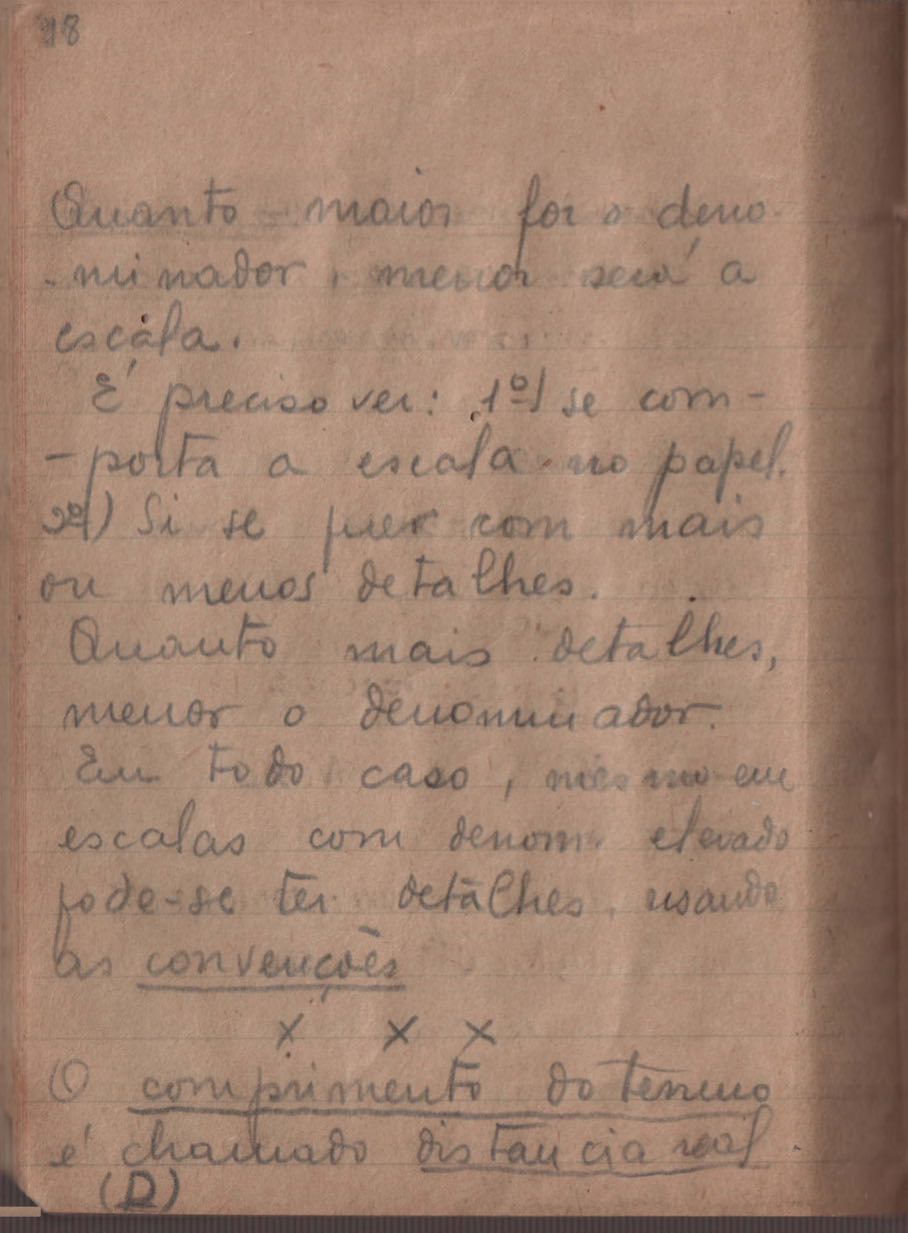 18
Quanto maior for o deno-
-minador, menor será a
escála.
É preciso ver: 1º) se com-
-porta a escála no papel.
2º) Si se quer com mais
ou menos detalhes.
Quanto mais detalhes,
menor o denominador.
Em todo caso, mesmo em
escalas com denom. elevado
pode-se ter detalhes, usando
as convenções
X X X
O comprimento do terreno
é chamado distancia real.
(D)